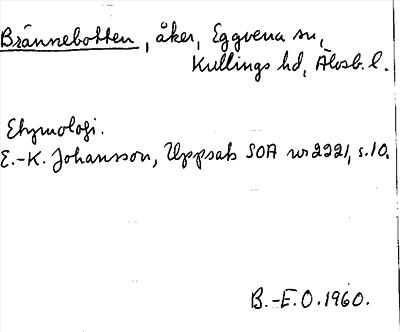 Brännebotten, åker, Eggvena sn,
Kullings hd, Älvsb. l.
Etymologi.
E.-K. Johansson, Uppsats SOA nr 2221, s. 10.
B.-E. O. 1960.